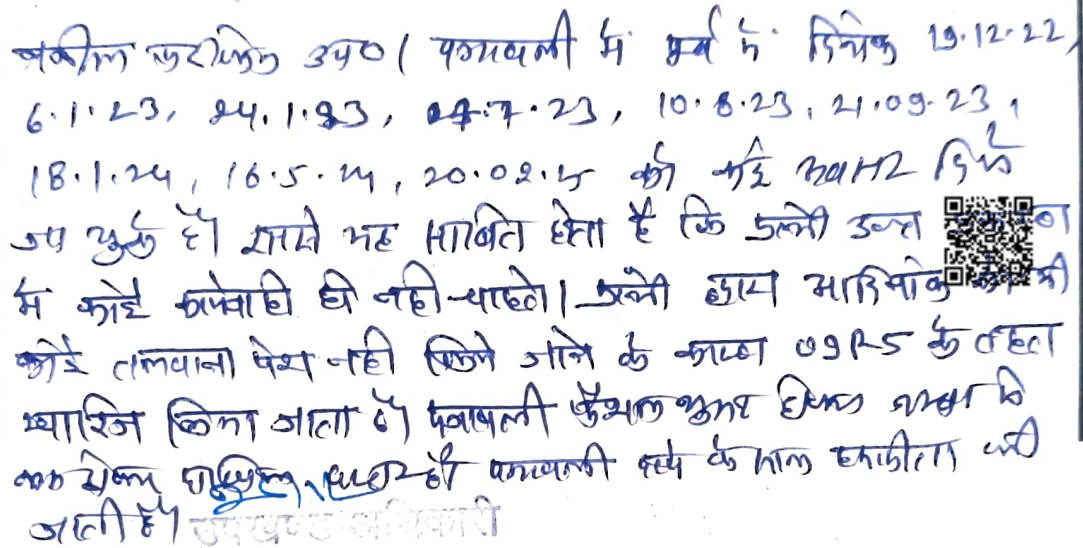 वकील फरीकेन उप०। पत्रावली में पूर्व में दिनांक 19.12.22,
6.1.23, 24.1.23, 27.7.23, 10.8.23, 21.09.23,
18.1.24, 16.5.24, 20.02.25 को कई अवसर दिये
जा चुके हैं। इससे यह साबित होता है कि प्रार्थी उक्त
में कोई कार्यवाही ही नहीं चाहते। प्रार्थी द्वारा आदिनांक की
कोई तलवाना पेश नहीं किये जाने के कारण O9R5 के तहत
खारिज किया जाता है। पत्रावली फैसल शुमार होकर नम्बर से
कम होकर दाखिल दफ्तर हो। पत्रावली के साथ की
जाती है।
उपखण्ड अधिकारी